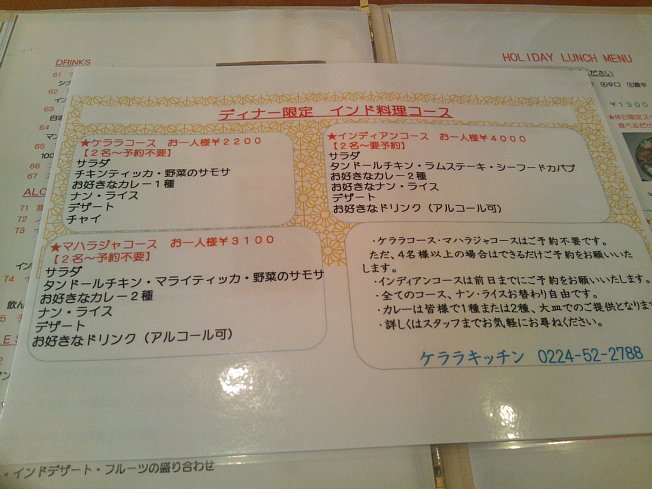 DRINKS
61
62
63
64
65
66
67
68
HOLIDAY LUNCH MENU
ください
辛口
激辛
¥1300
ディナー限定 インド料理コース
★ケララコース お一人様¥2200
【2名～予約不要】
サラダ
チキンティッカ・野菜のサモサ
お好きなカレー1種
ナン・ライス
デザート
チャイ
★インディアンコース お一人様¥4000
【2名～要予約】
サラダ
タンドールチキン・ラムステーキ・シーフードカバブ
お好きなカレー2種
お好きなナン・ライス
デザート
お好きなドリンク(アルコール可)
★マハラジャコース お一人様¥3100
【2名～予約不要】
サラダ
タンドールチキン・マライティッカ・野菜のサモサ
お好きなカレー2種
ナン・ライス
デザート
お好きなドリンク(アルコール可)
・ケララコース・マハラジャコースはご予約不要です。
ただ、4名様以上の場合はできるだけご予約をお願いいた
します。
・インディアンコースは前日までにご予約をお願いいたします。
・全てのコース、ナン・ライスお替わり自由です。
・カレーは皆様で1種または2種、大皿でのご提供となりま
・詳しくはスタッフまでお気軽にお尋ねください。
ケララキッチン 0224-52-2788
ALCO
71
72
73
74
飲ん
・インドデザート・フルーツの盛り合わせ